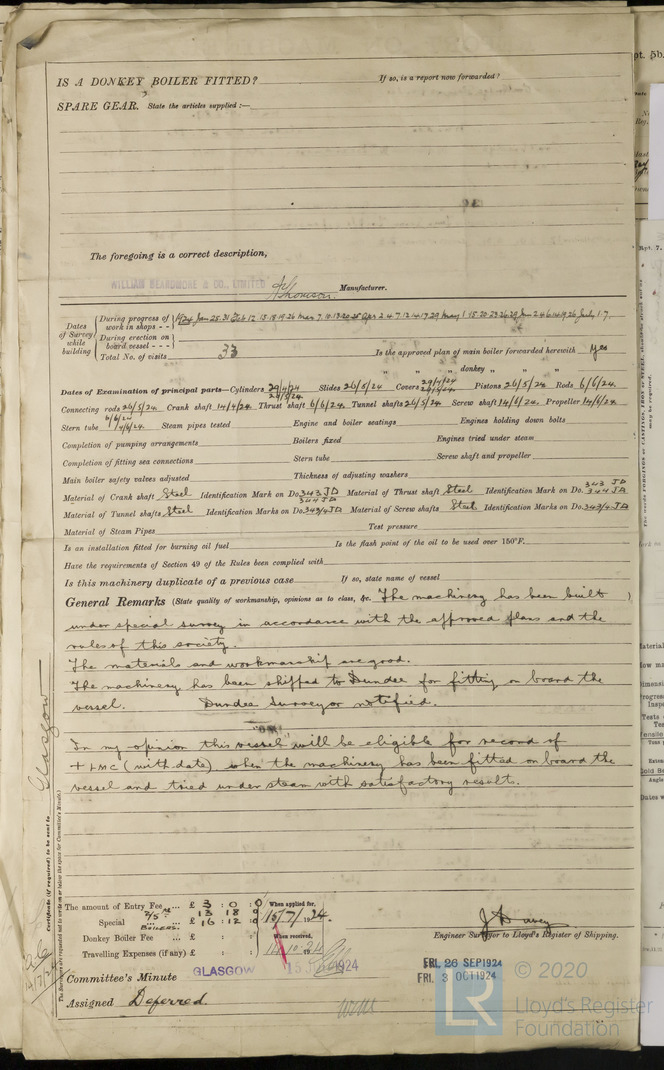 IS A DONKEY BOILER FITTED? If so, is a report now forwarded?
SPARE GEAR. State the articles supplied :—
The foregoing is a correct description,
WILLIAM BEARDMORE & CO., LIMITED Manufacturer.
Dates of Survey while building
During progress of work in shops - - 1924 Jan 25.31 Feb 12. 15.18.19.26 Mar 7.10.13.20.25 Apr 2.4.7.12.14.17.29 May 1.15.20.23.26.29 Jun 2.4.6.14.19.26 July 1.7.
During erection on board vessel - - -
Total No. of visits 33 Is the approved plan of main boiler forwarded herewith Yes
" " " donkey " " "
Dates of Examination of principal parts—Cylinders 29/4/24 Slides 26/5/24 Covers 29/4/24 Pistons 26/5/24 Rods 6/6/24.
Connecting rods 26/5/24. Crank shaft 14/4/24 Thrust shaft 6/6/24. Tunnel shafts 26/5/24. Screw shaft 14/6/24. Propeller 14/6/24.
Stern tube 14/6/24. Steam pipes tested Engine and boiler seatings Engines holding down bolts
Completion of pumping arrangements Boilers fixed Engines tried under steam
Completion of fitting sea connections Stern tube Screw shaft and propeller
Main boiler safety valves adjusted Thickness of adjusting washers
Material of Crank shaft Steel Identification Mark on Do. 343 JD 344 JD Material of Thrust shaft Steel Identification Mark on Do. 343 JD 344 JD
Material of Tunnel shafts Steel Identification Marks on Do. 343/4 JD Material of Screw shafts Steel Identification Marks on Do. 343/4 JD
Material of Steam Pipes Test pressure
Is an installation fitted for burning oil fuel Is the flash point of the oil to be used over 150°F.
Have the requirements of Section 49 of the Rules been complied with
Is this machinery duplicate of a previous case If so, state name of vessel
General Remarks (State quality of workmanship, opinions as to class, &c. The machinery has been built
under special survey in accordance with the approved plans and the
rules of this society.
The materials and workmanship are good.
The machinery has been shipped to Dundee for fitting on board the
vessel. Dundee Surveyor notified.
In my opinion this vessel will be eligible for record of
+ LMC (with date) when the machinery has been fitted on board the
vessel and tried under steam with satisfactory result.
Glasgow
Certificate (if required) to be sent to
The amount of Entry Fee ... £ 3 : 0 : 0 When applied for,
Special ... £ 16 : 12 : 15/7/1924.
BOILERS.
Donkey Boiler Fee ... £ When received,
Travelling Expenses (if any) £
Engineer Surveyor to Lloyd's Register of Shipping.
Committee's Minute GLASGOW 15 1924
FRI. 26 SEP 1924
FRI. 3 OCT 1924
Assigned Deferred
© 2020
LR
Lloyd's Register
Foundation